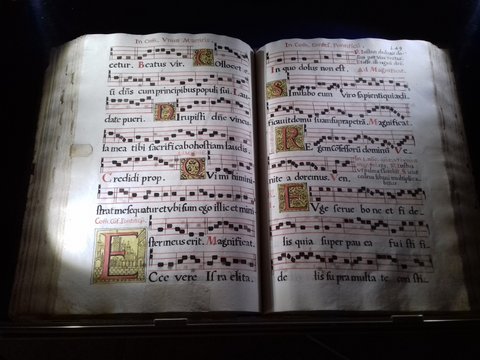 In Com. Vnius Martiris.
cetur. Beatus vir. Collocet e
si dñs cum principibus populi sui. Lau
date pueri. Dirupisti dñe vincu
la mea tibi sacrificabo hostiam laudis.
Credidi prop. Qui mihi mini
strat me sequatur et vbi sum ego illic et mini
ster meus erit. Magnificat.
Ecce vere Israelita.
In Com. Confes. Pontificis.
In quo dolus non est. Ad Magnificat.
Similabo eum viro sapienti qui ædi
ficauit domũ suam supra petrã. Magnificat.
Regem Cõfessorũ dominũ Ve
nite adoremus. Ven.
Euge serue bone et fide
lis quia super pauca fuisti
delis supra multa te consti